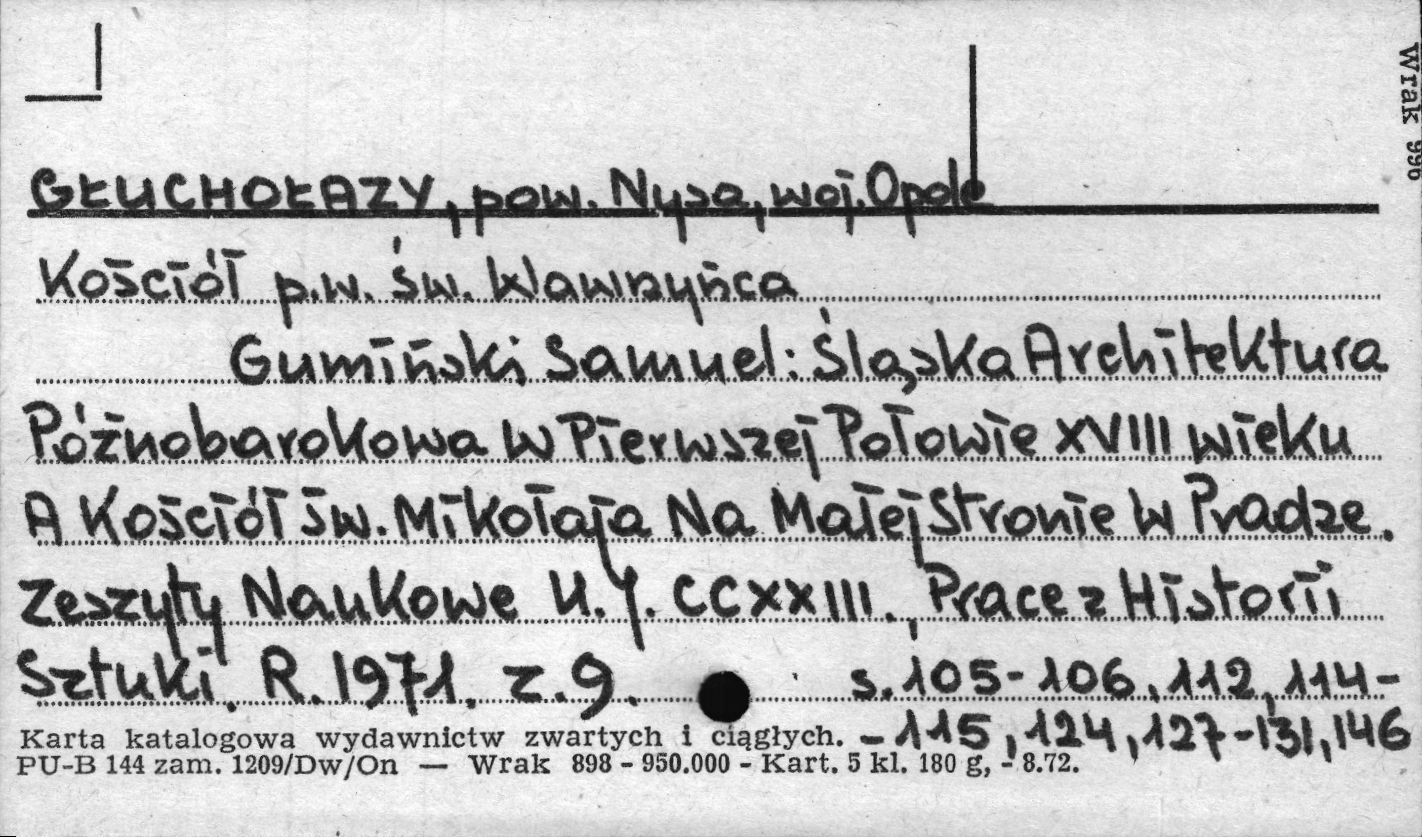 Wrak 996
GŁUCHOŁAZY, pow. Nysa, woj. Opole
Kościół p.w. św. Wawrzyńca
Gumiński Samuel: Śląska Architektura
Późnobarokowa W Pierwszej Połowie XVIII wieku
A Kościół św. Mikołaja Na Małej Stronie W Pradze.
Zeszyty Naukowe U.J. CCXXIII. Prace z Historii
Sztuki, R. 1971. z. 9. s. 105-106, 112, 114-
-115, 124, 127-131, 146
Karta katalogowa wydawnictw zwartych i ciągłych.
PU-B 144 zam. 1209/Dw/On — Wrak 898 - 950.000 - Kart. 5 kl. 180 g, - 8.72.